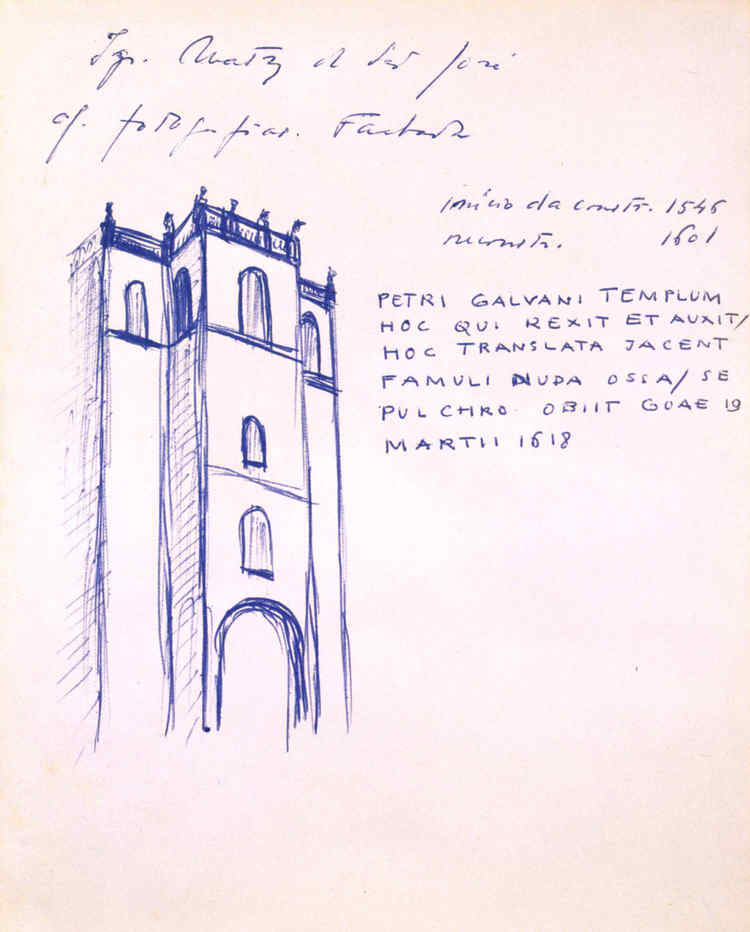 Igr. Matriz de São José
cf. fotografias. Fachada
início da constr. 1546
reconstr. 1601
PETRI GALVANI TEMPLUM
HOC QUI REXIT ET AUXIT/
HOC TRANSLATA JACENT
FAMULI NUDA OSSA/SE
PULCHRO OBIIT GOAE 19
MARTII 1618